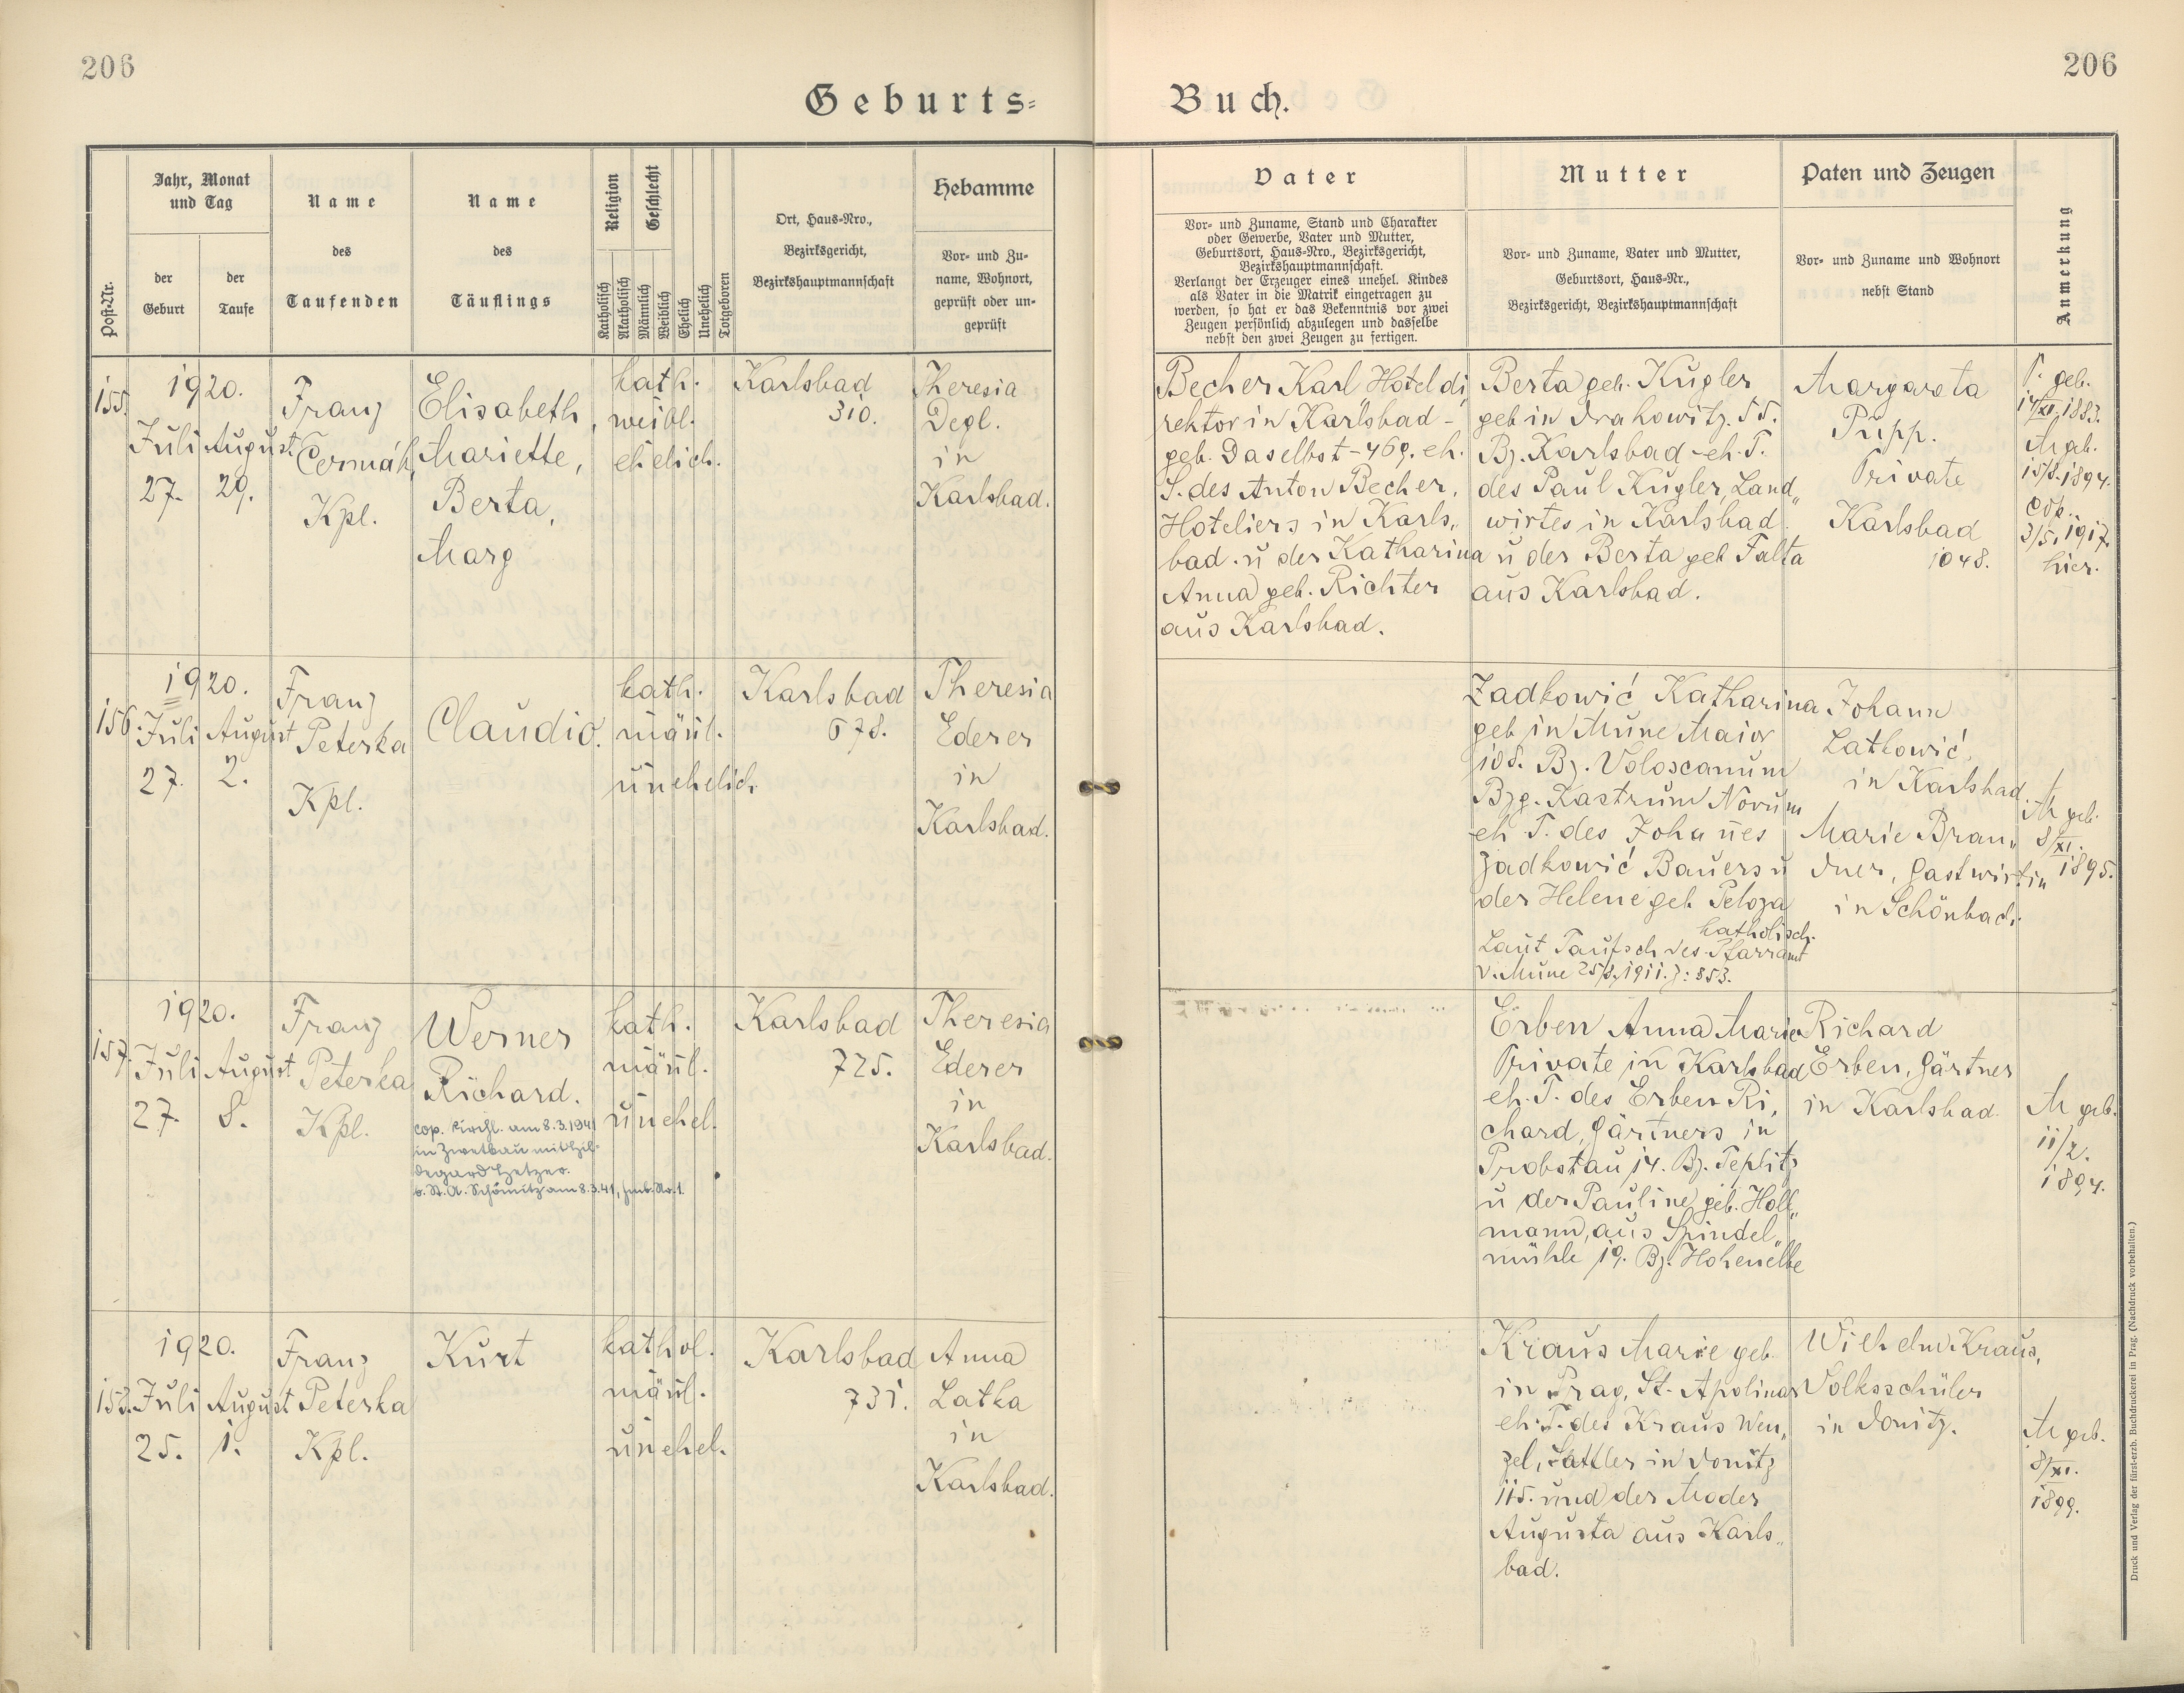 206
206
Geburts=
Buch.
Post-Nr.
Jahr, Monat
und Tag
der
Geburt
der
Taufe
Name
des
Taufenden
Name
des
Täuflings
Religion
Geschlecht
Katholisch
Akatholisch
Männlich
Weiblich
Ehelich
Unehelich
Totgeboren
Ort, Haus-Nro.,
Bezirksgericht,
Bezirkshauptmannschaft
Hebamme
Vor- und Zu-
name, Wohnort,
geprüft oder un-
geprüft
Vater
Vor- und Zuname, Stand und Charakter
oder Gewerbe, Vater und Mutter,
Geburtsort, Haus-Nro., Bezirksgericht,
Bezirkshauptmannschaft.
Verlangt der Erzeuger eines unehel. Kindes
als Vater in die Matrik eingetragen zu
werden, so hat er das Bekenntnis vor zwei
Zeugen persönlich abzulegen und dasselbe
nebst den zwei Zeugen zu fertigen.
Mutter
Vor- und Zuname, Vater und Mutter,
Geburtsort, Haus-Nr.,
Bezirksgericht, Bezirkshauptmannschaft
Paten und Zeugen
Vor- und Zuname und Wohnort
nebst Stand
Anmerkung
155.
1920.
Juli August
27. 29.
Franz
Čermák,
Kpl.
Elisabeth,
Mariette,
Berta,
Marg
kath.
weibl.
ehelich.
Karlsbad
310.
Theresia
Degl.
in
Karlsbad.
Becher Karl Hoteldi
rektor in Karlsbad -
geb. Daselbst - 469. eh.
S. des Anton Becher,
Hoteliers in Karls„
bad. u der Katharina
Anna geb. Richter
aus Karlsbad.
Berta geb. Kugler
geb in Drahowitz. 55.
Bz. Karlsbad - eh. T.
des Paul Kugler, Land„
wirtes in Karlsbad
u der Berta geb Falta
aus Karlsbad.
Margareta
Pupp.
Private
Karlsbad
1048.
V. geb.
14/XI. 1883.
M gb.
15/8. 1894.
cop.
3/5. 1917.
hier.
156.
1920.
Juli August
27. 2.
Franz
Peterka
Kpl.
Claudio.
kath.
mänl.
unehelich.
Karlsbad
678.
Theresia
Ederer
in
Karlsbad.
Zadkowić Katharina
geb in Mune Maior
108. Bz. Voloscanum
Bzg. Kastrum Novum
eh T. des Johanes
Zadkowić Bauers u
der Helene geb Peloza
katholisch.
Laut Taufsch des Pfarramt
v. Mune 25/8. 1911. Z: 853.
Johann
Latkowić,
in Karlsbad.
Marie Bran„
dner, Gastwirtin
in Schönbach.
M geb.
8/XI.
1895.
157.
1920.
Juli August
27. 8.
Franz
Peterka
Kpl.
Werner
Richard.
cop. kirchl. am 8.3.1941
in Zwetbau mit Hil-
degard Hetzer.
b. St. A. Schömitz am 8.3.41, fmb. No. 1.
kath.
mänl.
unehel.
Karlsbad
725.
Theresia
Ederer
in
Karlsbad.
Erben Anna Marie
Private in Karlsbad
eh. T. des Erben Ri,
chard, Gärtners in
Probstau 14. Bz. Teplitz
u der Pauline geb. Holl„
mann, aus Spindel„
mühle 19. Bz. Hohenelbe
Richard
Erben, Gärtner
in Karlsbad.
M geb.
11/2.
1894.
158.
1920.
Juli August
25. 1.
Franz
Peterka
Kpl.
Kurt
kathol.
mänl.
unehel.
Karlsbad
731.
Anna
Latka
in
Karlsbad.
Kraus Marie geb.
in Prag, St. Apolinar
eh. T. des Kraus Wen„
zel, Sattler in Donitz
115. und der Moder
Augusta aus Karls„
bad.
Wilhelm Kraus,
Volksschüler
in Donitz.
M geb.
8/XI.
1899.
Druck und Verlag der fürst-erzb. Buchdruckerei in Prag. (Nachdruck vorbehalten.)